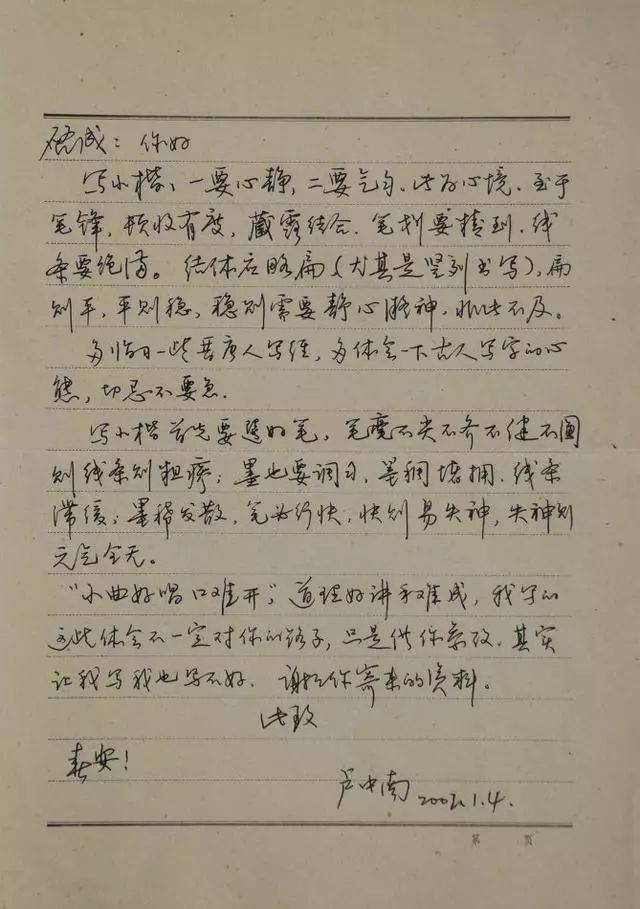 硕诚：你好
写小楷，一要心静，二要气匀。此为心境。至于
笔锋，顿收有度，藏露结合。笔划要精到，线
条要饱满。结体应略扁（尤其是竖列书写），扁
则平，平则稳，稳则需要静心凝神，非此不及。
多临习一些晋唐人写经，多体会一下古人写字的心
态，切忌不要急。
写小楷首先要选好笔，笔度不尖不齐不健不圆
则线条则粗疏；墨也要调匀，墨稠堵拥，线条
滞缓；墨稀发散，笔必行快，快则易失神，失神则
元气全无。
“小曲好唱口难开”，道理好讲手难成，我写的
这些体会不一定对你的路子，只是供你参改。其实
让我写我也写不好。谢谢你寄来的资料。
此致
春安！
卢中南 2002.1.4.
第 页